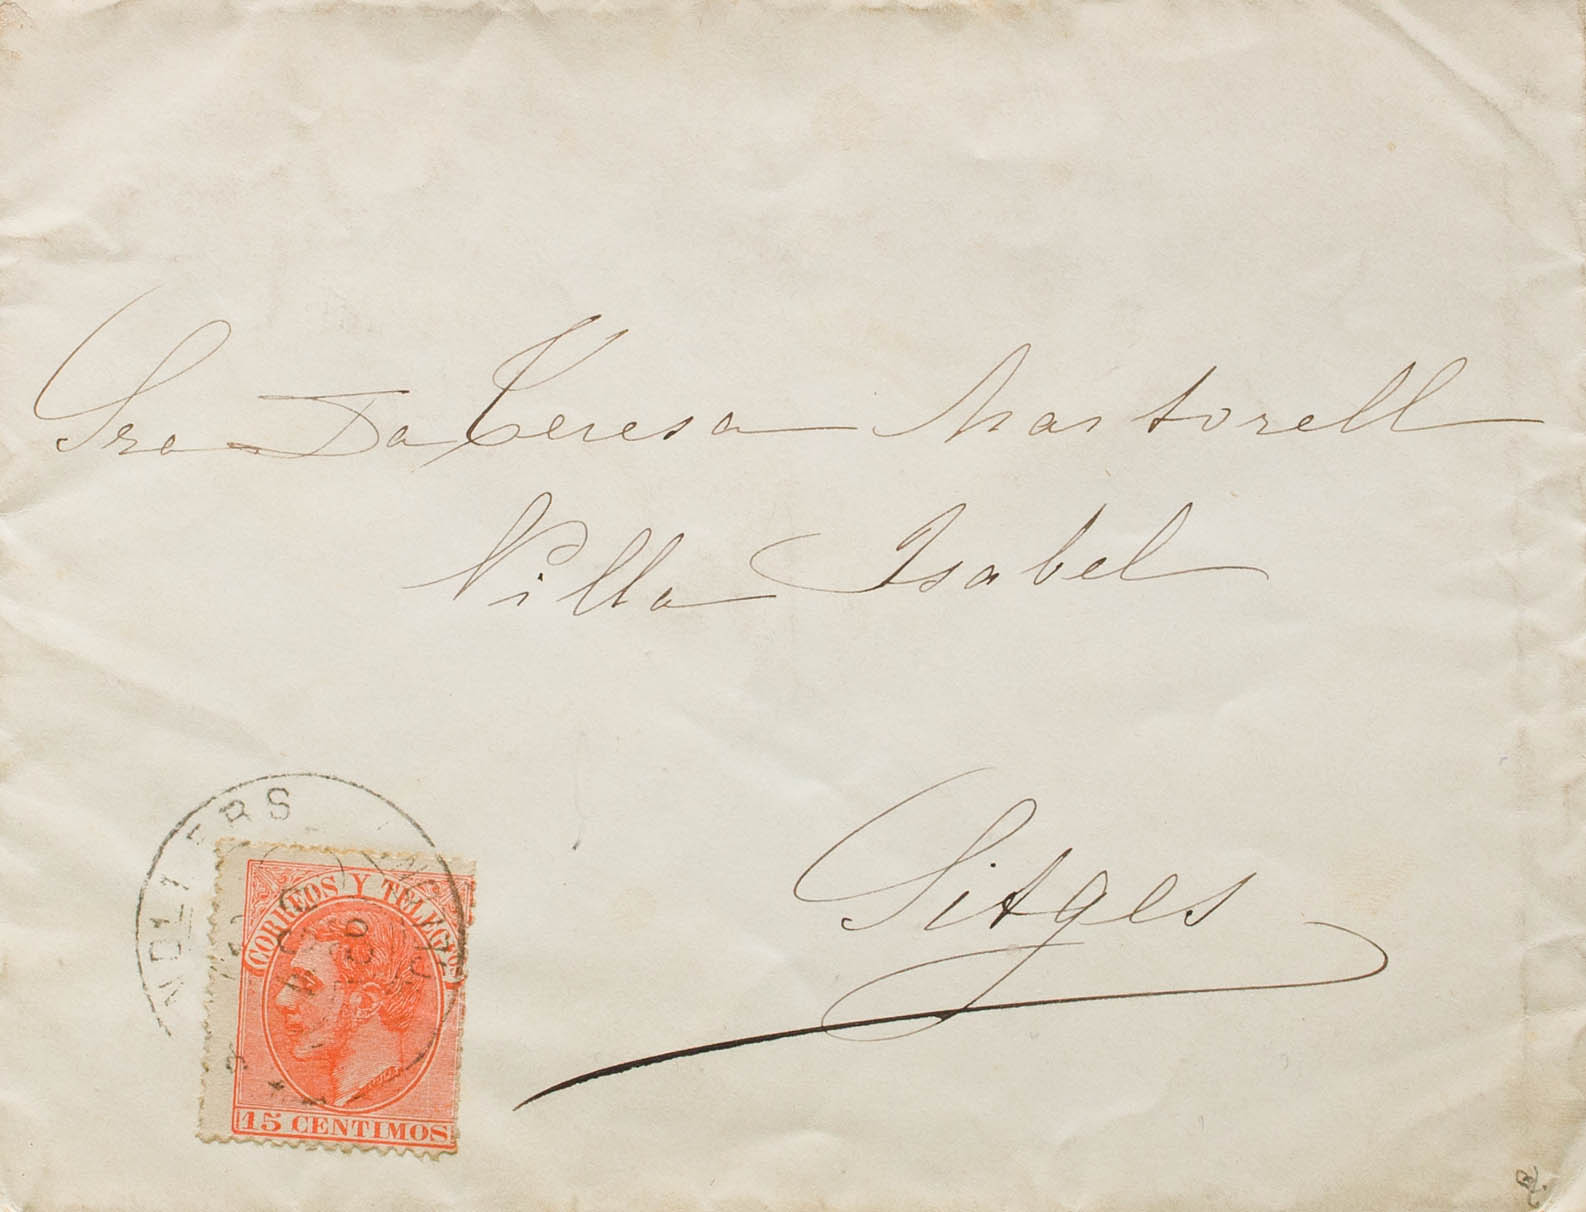 Sra Da Teresa Martorell
Villa Isabel
Sitges
CORREOS Y TELEGFOS
15 CENTIMOS